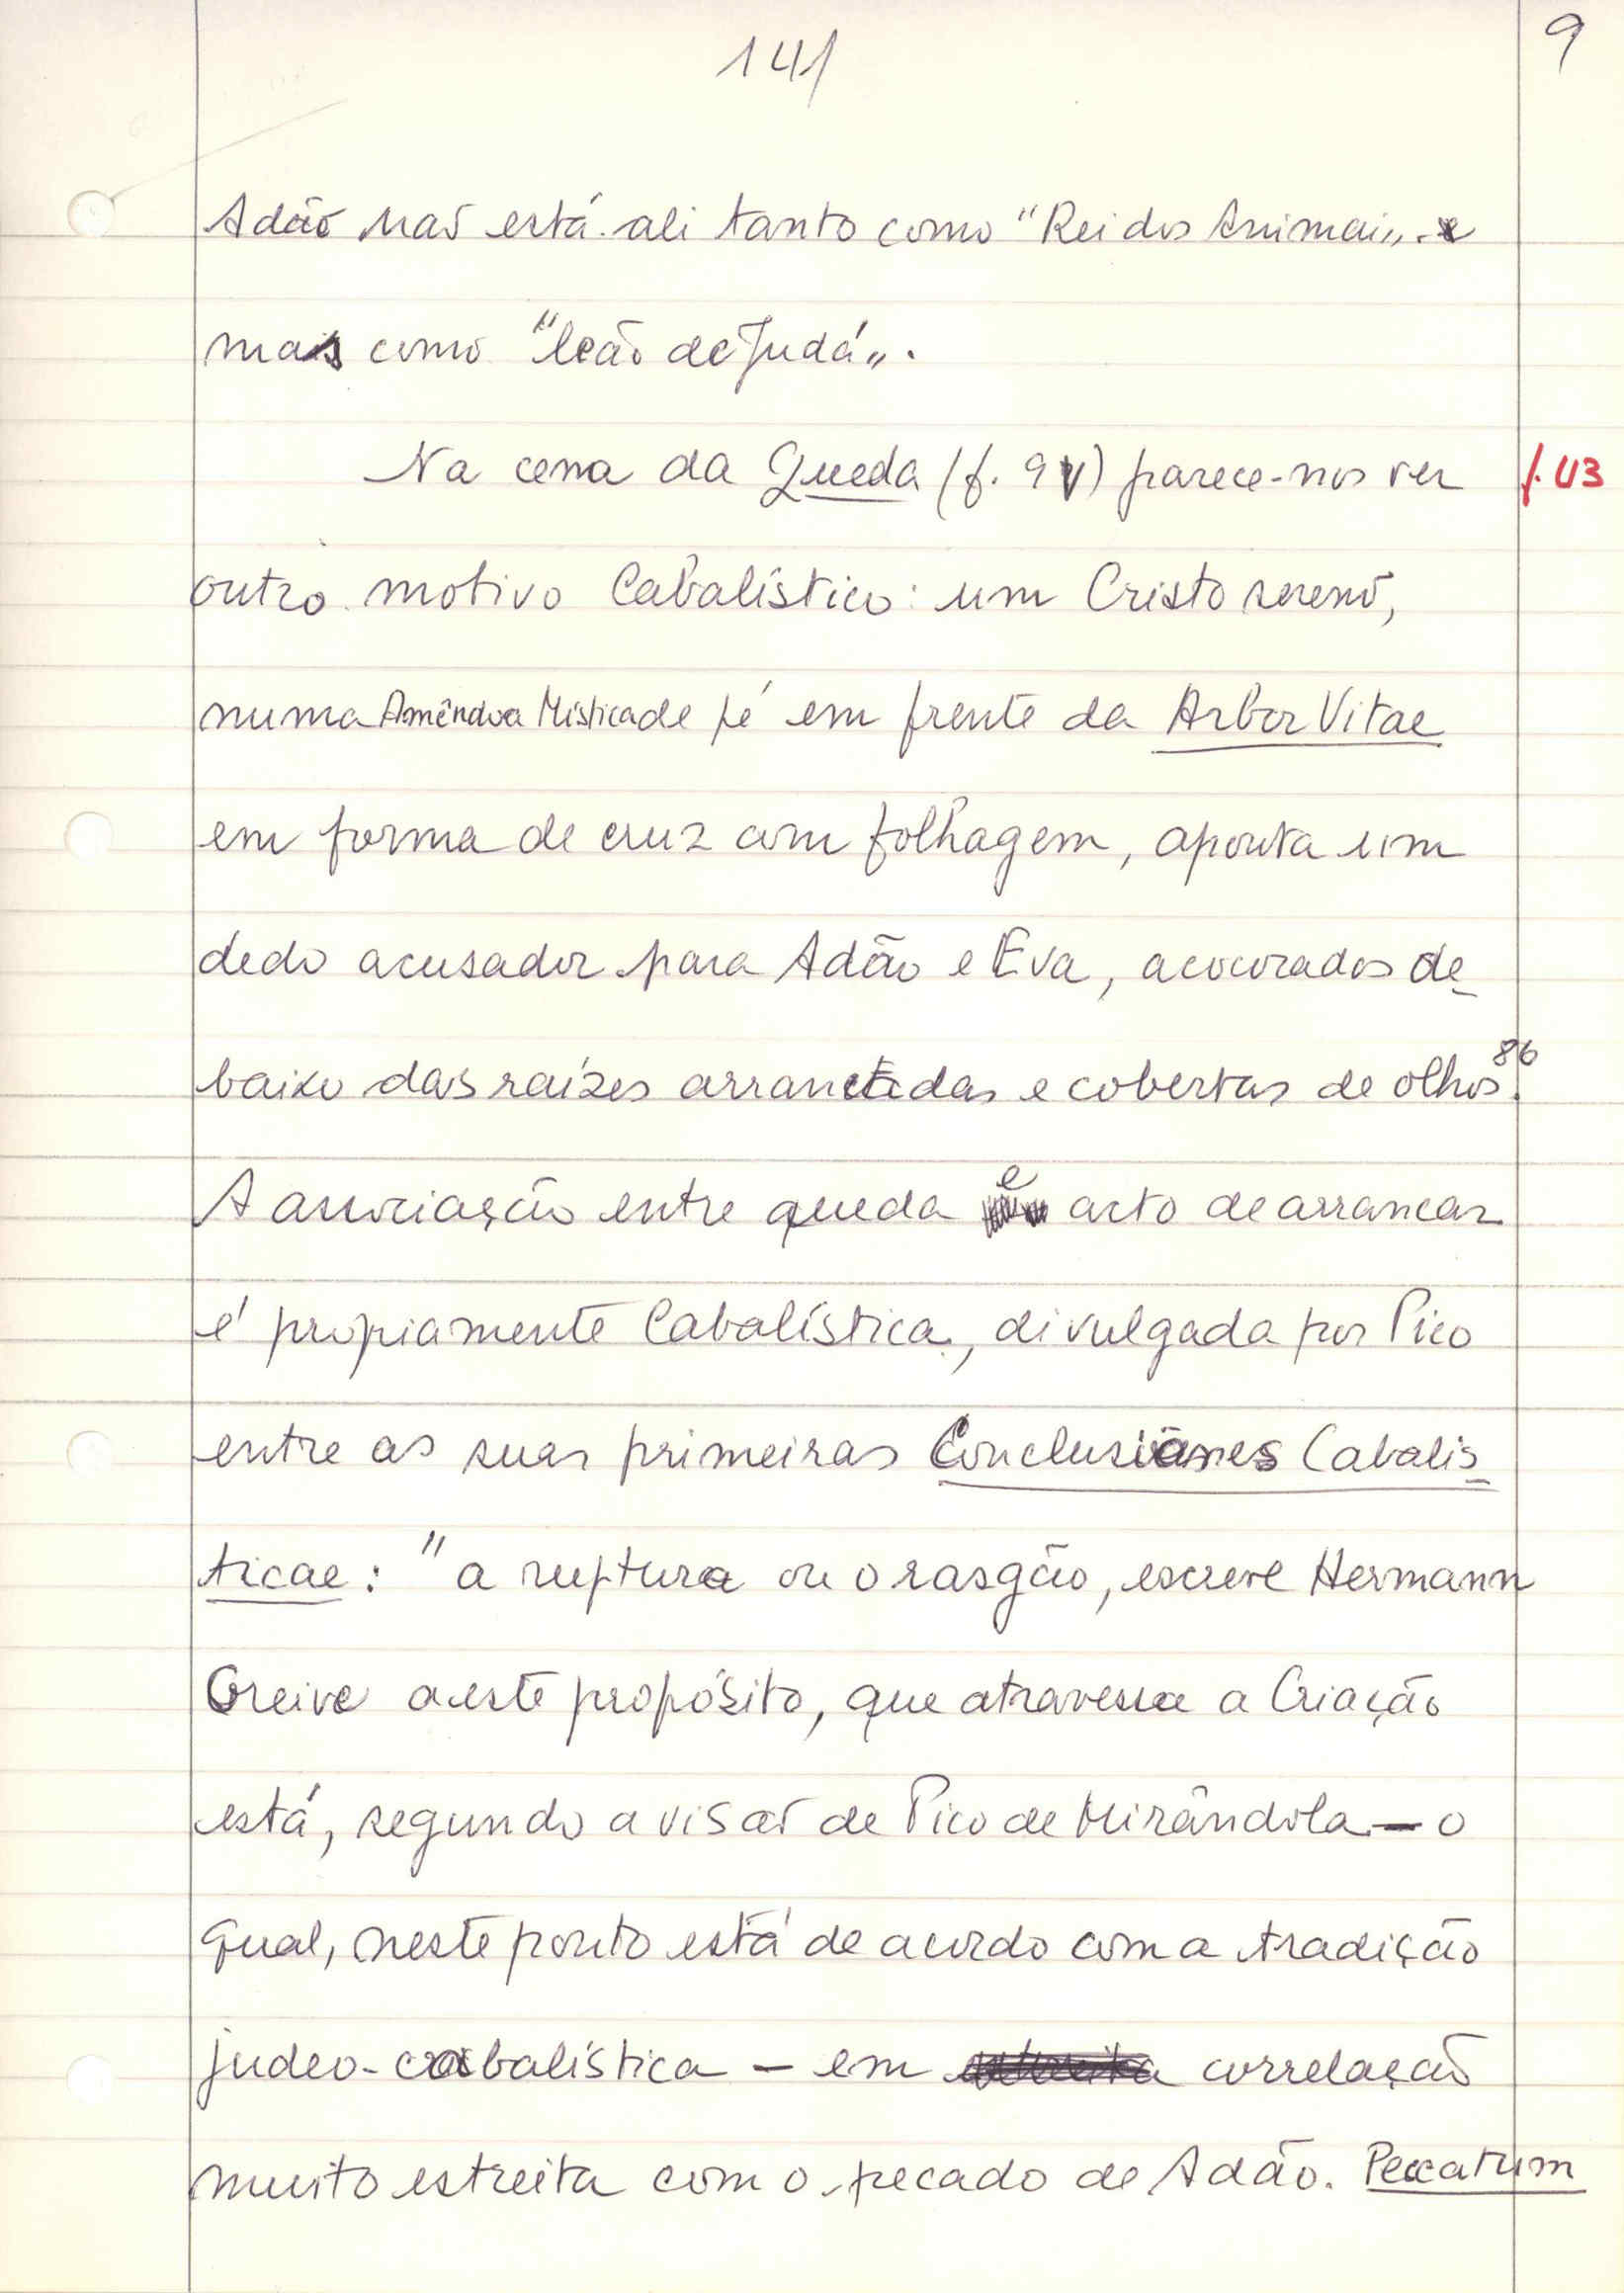 141
9
Adão não está ali tanto como "Rei dos Animais" e
mais como "leão de Judá".
Na cena da Queda (f. 9v) parece-nos ver
f. 43
outro motivo Cabalístico: um Cristo sereno,
numa Amêndoa Mística de pé em frente da Arbor Vitae
em forma de cruz com folhagem, aponta um
dedo acusador para Adão e Eva, acocorados de-
baixo das raízes arrancadas e cobertas de olhos 86.
A associação entre queda e acto de arrancar
é propriamente Cabalística, divulgada por Pico
entre as suas primeiras Conclusiones Cabalis-
ticae: "a ruptura ou o rasgão, escreve Hermann
Greive a este propósito, que atravessa a Criação
está, segundo a visão de Pico de Mirândola - o
qual, neste ponto está de acordo com a tradição
judeo-cabalística - em correlação
muito estreita com o pecado de Adão. Peccatum